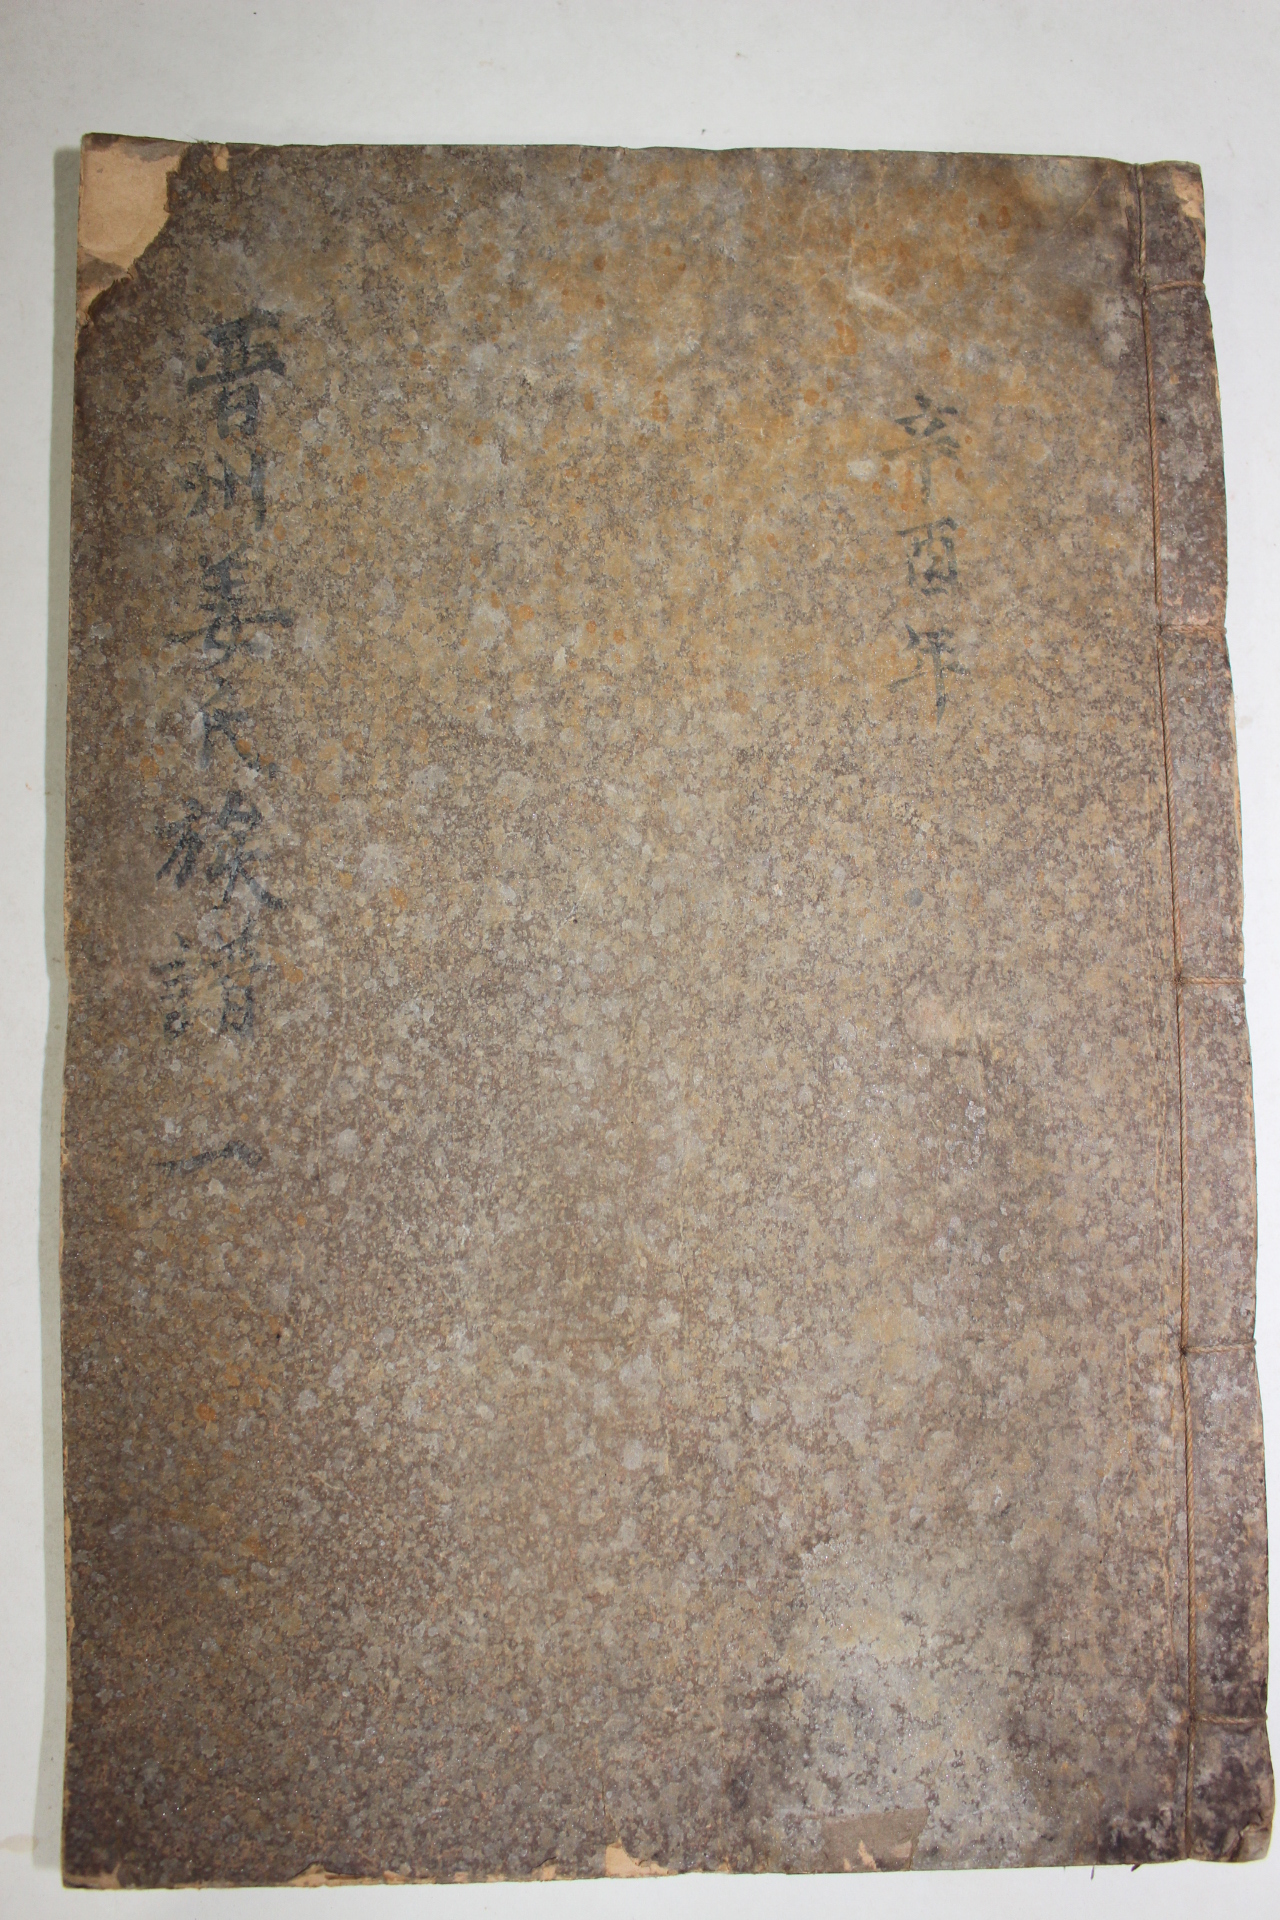 辛酉年
晋州姜氏族譜 一